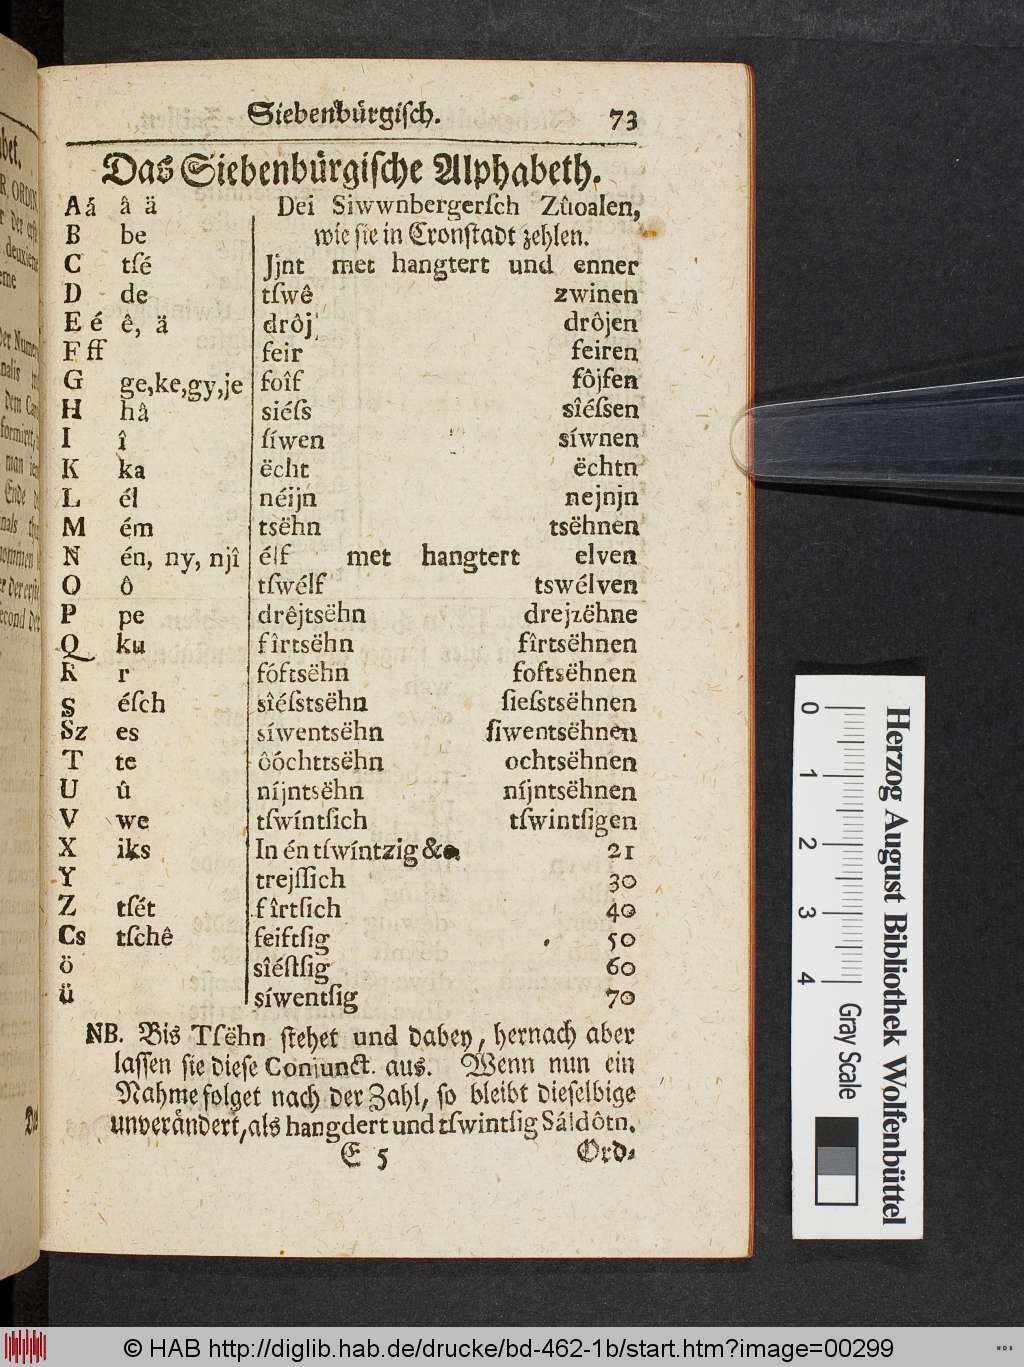 Siebenbürgiſch. 73
Das Siebenbürgiſche Alphabeth.
A á â ä
B be
C tſé
D de
E é ê, ä
F ff
G ge,ke,gy,je
H hâ
I î
K ka
L él
M ém
N én, ny, njî
O ô
P pe
Q ku
R r
S éſch
Sz es
T te
U û
V we
X iks
Y
Z tſét
Cs tſchê
ö
ü
Dei Siwwnbergerſch Zûoalen,
wie ſie in Cronſtadt zehlen.
Jjnt met hangtert und enner
tſwê zwinen
drôj drôjen
feir feiren
foîf fôjfen
siéſs sîéſsen
ſíwen síwnen
ëcht ëchtn
néijn nejnjn
tsëhn tsëhnen
élf met hangtert elven
tſwélf tswélven
drêjtsëhn drejzëhne
fîrtsëhn fîrtsëhnen
fóftsëhn foftsëhnen
sîéſstsëhn ſieſstsëhnen
síwentsëhn ſiwentsëhnen
ôóchttsëhn ochtsëhnen
níjntsëhn níjntsëhnen
tſwíntſich tſwintſigen
In én tſwíntzig &c. 21
trejſſich 30
fîrtſich 40
feiftſig 50
sîéſtſig 60
síwentſig 70
NB. Bis Tſëhn ſtehet und dabey, hernach aber
laſſen ſie dieſe Coniunct. aus. Wenn nun ein
Nahme folget nach der Zahl, ſo bleibt dieſelbige
unverändert, als hangdert und tſwintſig Sáldôtn.
E 5 Ord⸗
0 1 2 3 4
Herzog August Bibliothek Wolfenbüttel
Gray Scale
© HAB http://diglib.hab.de/drucke/bd-462-1b/start.htm?image=00299